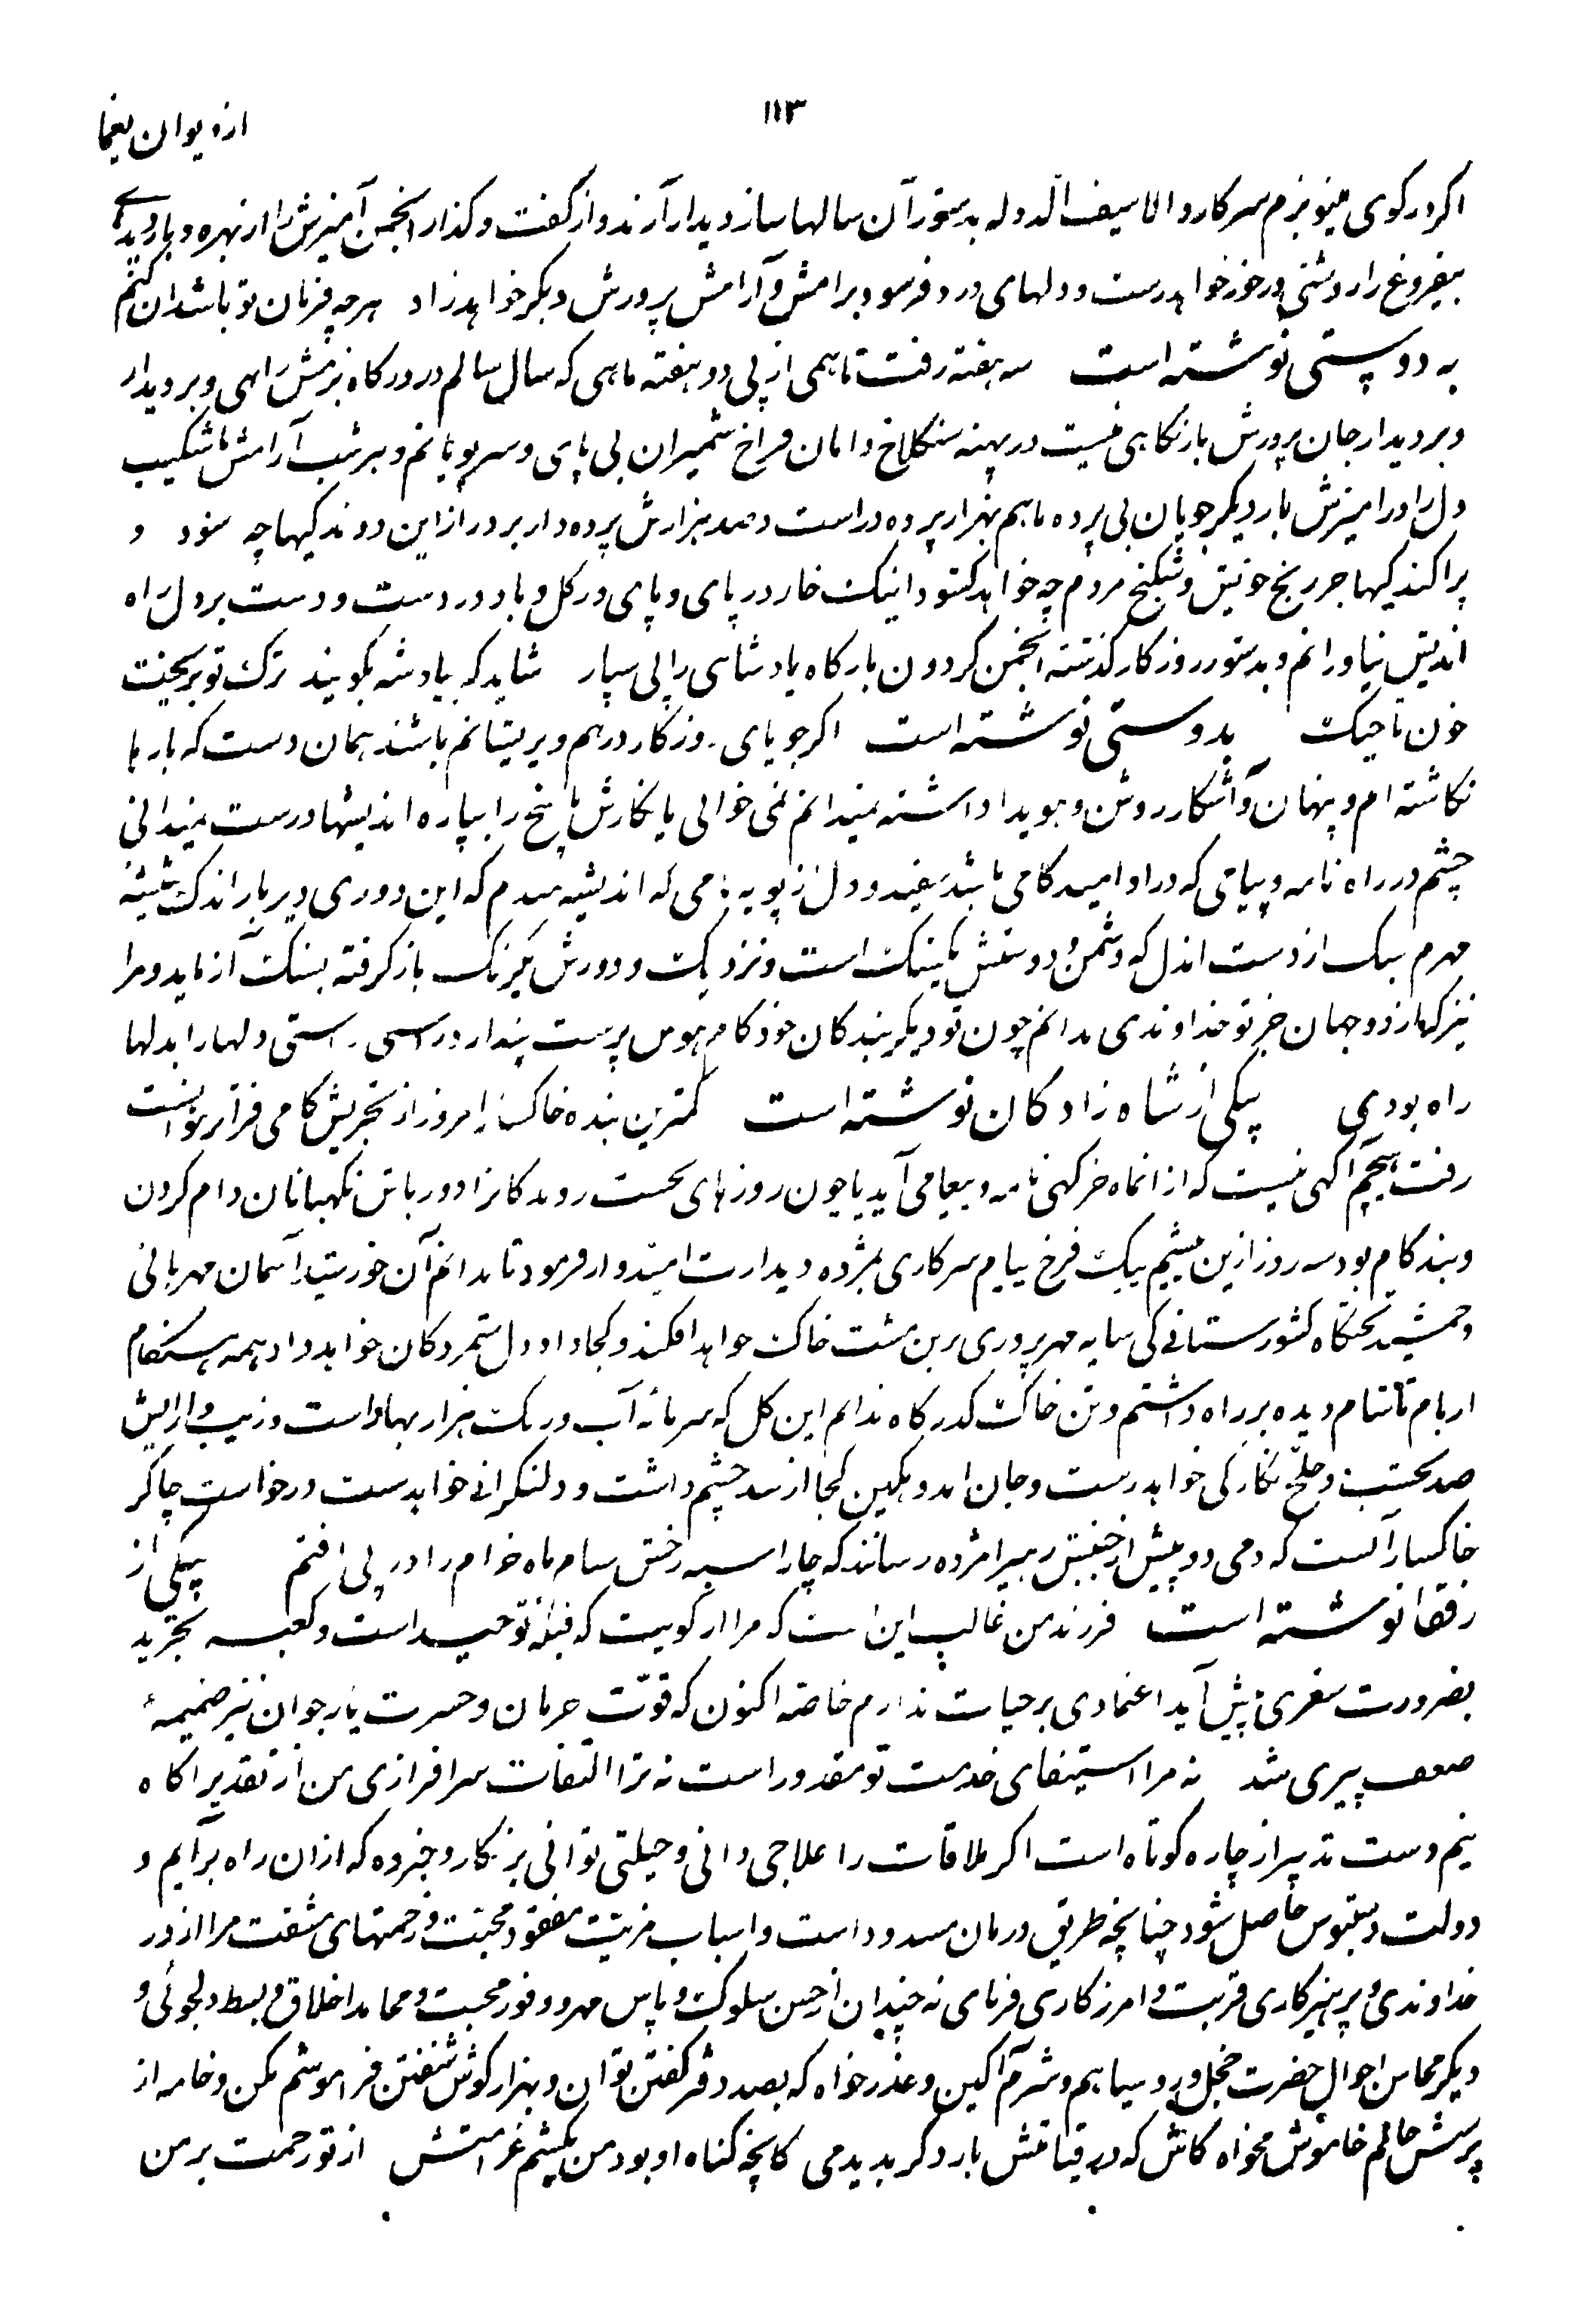 ۱۱۳
از دیوان یغما
اکر در کوی مینو بزم سرکار والا سیف الدوله بدستور آن سالها ساز دیدار آرند و از کفت و کذار انجمن آمیزش را از نبهره و باز دیدهای
بیفروغ را روشنی در خور خواهد رست و دلهای درد فرسود برامش و آرامش پرورش دیکر خواهد زاد هرچه فرمان تو باشد ان کنم
به دوستی نوشته است سه هفته رفت تا همی از پی دو هفته ماهی که سال سالم در درکاه بزمش راهی و بر دیدار
و بر دیدار جان پرورش باز نکاهی نیست در پهنه سنکلاخ دامان فراخ شمیران بی پای و سر پویانم و بر شب آرامش ناشکیب
دل را در امیزش بار دیکر جویان بی پرده ماهم بهزار پرده در است و صد هزارش پرده دار بر در از این دوندکیها چه سود و
پراکندکیها جز رنج خویش و شکنج مردم چه خواهد کشود اینک خار در پای و پای در کل و باد در دست و دست بر دل راه
اندیش نیاورانم و بدستور روزکار کذشته انجمن کردون بارکاه پادشاهی را پی سپار شاید که بپادشه بکویند ترک تو بریخت
خون تاجیک بدوستی نوشته است اکر جویای روزکار درهم و پریشانم باشند همان دست که بارها
نکاشته ام و پنهان و آشکار روشن و هویدا داشته نمیدانم نمی خوانی یا نکارش پاسخ را بپاره اندیشها درست نمیدانی
چشم در راه نامه و پیامی که در او امید کامی باشد سفید و دل ز پویه نامی که اندیشه مدم که این دوری دیر باز اندک شیشه
مهرم بسک از دست اندل که دشمن و دوستش یکسنک است و نزدیک و دورش یکرنک باز کرفته بسنک آزماید و مرا
نیز کها ز دو جهان جز تو خداوندی ندانم چون تو دیکر بندکان خود کام هوس پرست پندارد راستی راستی دلها را بدلها
راه بودی یکی از شاه زادکان نوشته است کمترین بنده خاکسار امروز از تجریش کامی فراتر نتوانست
رفت هیچم آکهی نیست که از انماه خرکهی نامه و پیامی آید یا چون روزهای نخست روندکانرا دور باش نکهبانان دام کردن
و بند کام بود سه روز ازین پیشم پیک فرخ پیام سرکاری بمژده دیدارت امیدوار فرمود تا ندانم آن خورشید آسمان مهربانی
و جمشید تختکاه کشورستانی کی سایه مهر پروری برین مشت خاک خواهد افکند و کجا داد دل ستمردکان خواهد داد همه هنکام
از بام تا شام دیده بر راه داشتم و تن خاک درکاه ندانم این کل که سرمایه آب و رنک هزار بهار است و زیب و ارایش
صد بهشت و خلخ نکار کی خواهد رست و جان اندوهکین کجا از سد چشم داشت و دلنکرانی خواهد رست درخواست چاکر
خاکسار آنست که دمی دو پیش از جنبش رهبر امژده رسانند که چار اسبه رخش سام ماه خرام را در پی افتم یکی از
رفقا نوشته است فرزند من غالب این است که مرا از کویت که قبله توحید است و کعبه تجرید
بضرورت سفری پیش آید اعتمادی بر حیات ندارم خاصه اکنون که قوت حرمان و حسرت یار جوان نیز ضمیمهٔ
ضعف پیری شد نه مرا استیفای خدمت تو مقدور است نه ترا التفات سرافرازی من از تقدیر آکاه
نیم و دست تدبیر از چاره کوتاه است اکر ملاقات را علاجی دانی و حیلتی توانی بر نکار و خبر ده که از ان راه برآیم و
دولت دستبوس حاصل شود چنانچه طریق درمان مسدود است و اسباب مزیت مفقود محبت و زحمتهای مشقت مرا از در
خداوندی و پرهیزکاری قربت و امرزکاری فرمای نه چندان از حسن سلوک و پاس مهر و وفور محبت و محامد اخلاق و بسط دلجوئی و
دیکر محاسن احوال حضرت خجل و رو سیاهم و شرم آکین و عذر خواه که بصد دفتر کفتن توان و بهزار کوش شنفتن فراموشم مکن و خامه از
پرسش حالم خاموش مخواه کاش که در قیامتش بار دکر بدیدمی کانچه کناه او بود من بکشم غرامتش از تو رحمت بر من